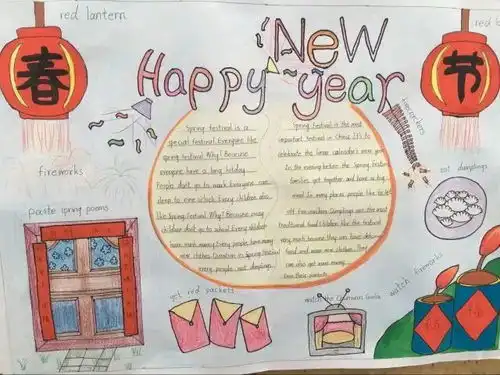 red lantern
NeW
Happy year
red l
春
节
firecrackers
fireworks
eat dumplings
paste spring poems
Spring Festival is a
special festival. Everyone like
spring festival. Why? Because
everyone have a long holiday.
People don't go to work. Everyone can
sleep to nine o'clock. Every children also
like Spring Festival. Why? Because many
children don't go to school. Every children
have much money. Every people have many
new clothes. Dumplings in Spring Festival
every people eat dumplings.
Spring Festival is the most
important festival in China. It's to
celebrate the lunar calendar's new year.
In the evening before the Spring Festival
families get together and have a big
meal. In many places people like to set
off firecrackers. Dumplings are the most
traditional food. Children like the festival
very much, because they can have delicious
food and wear new clothes. They
can also get some money
from their parents.
get red packets
watch the Chunwan Gala
watch fireworks